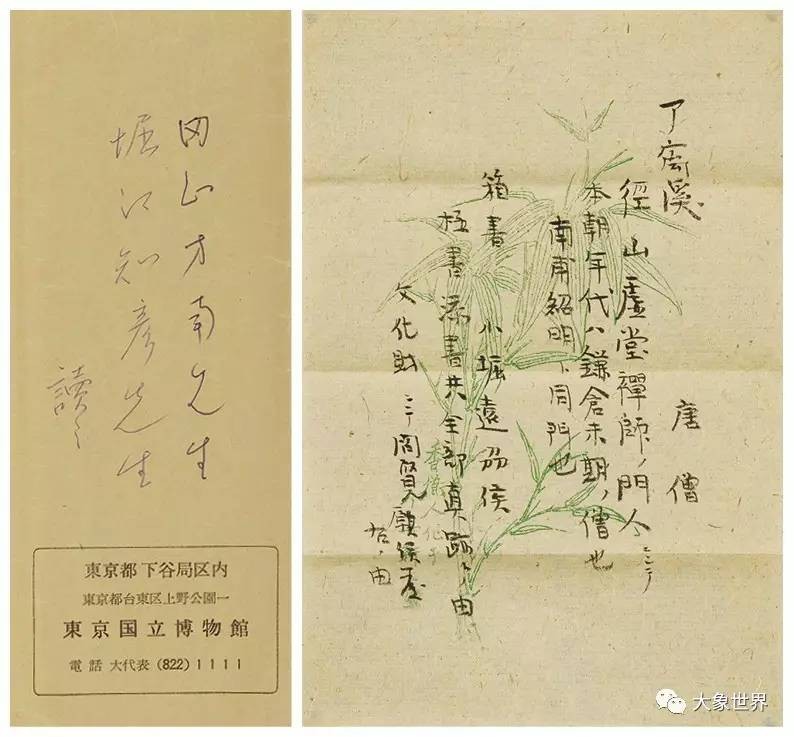 田山方南先生
堀江知彦先生
讀
東京都下谷局区内
東京都台東区上野公園一
東京国立博物館
電話 大代表 (822) 1111
唐僧
徑山虛堂禪師ノ門人ニシテ
本朝年代ハ鎌倉末期ノ僧也
南甫紹明ト同門也
箱書 小堀遠州侯
極書添書共全部真跡ノ由
文化財ニテ
大象世界